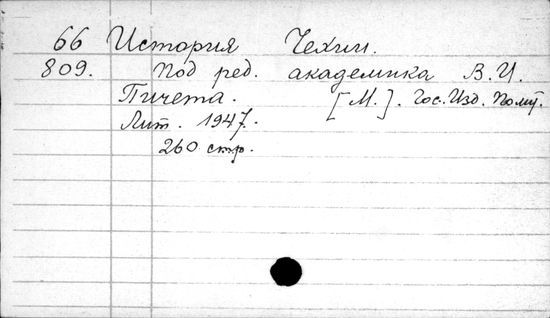 66 История Чехии.
809. Под ред. академика В. И.
Пичета. [М.]. Гос. Изд. Полит.
Лит. 1947.
260 стр.